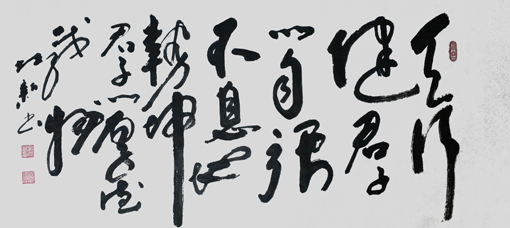 天行
健君子
以自強
不息地
勢坤
君子以厚德
載物